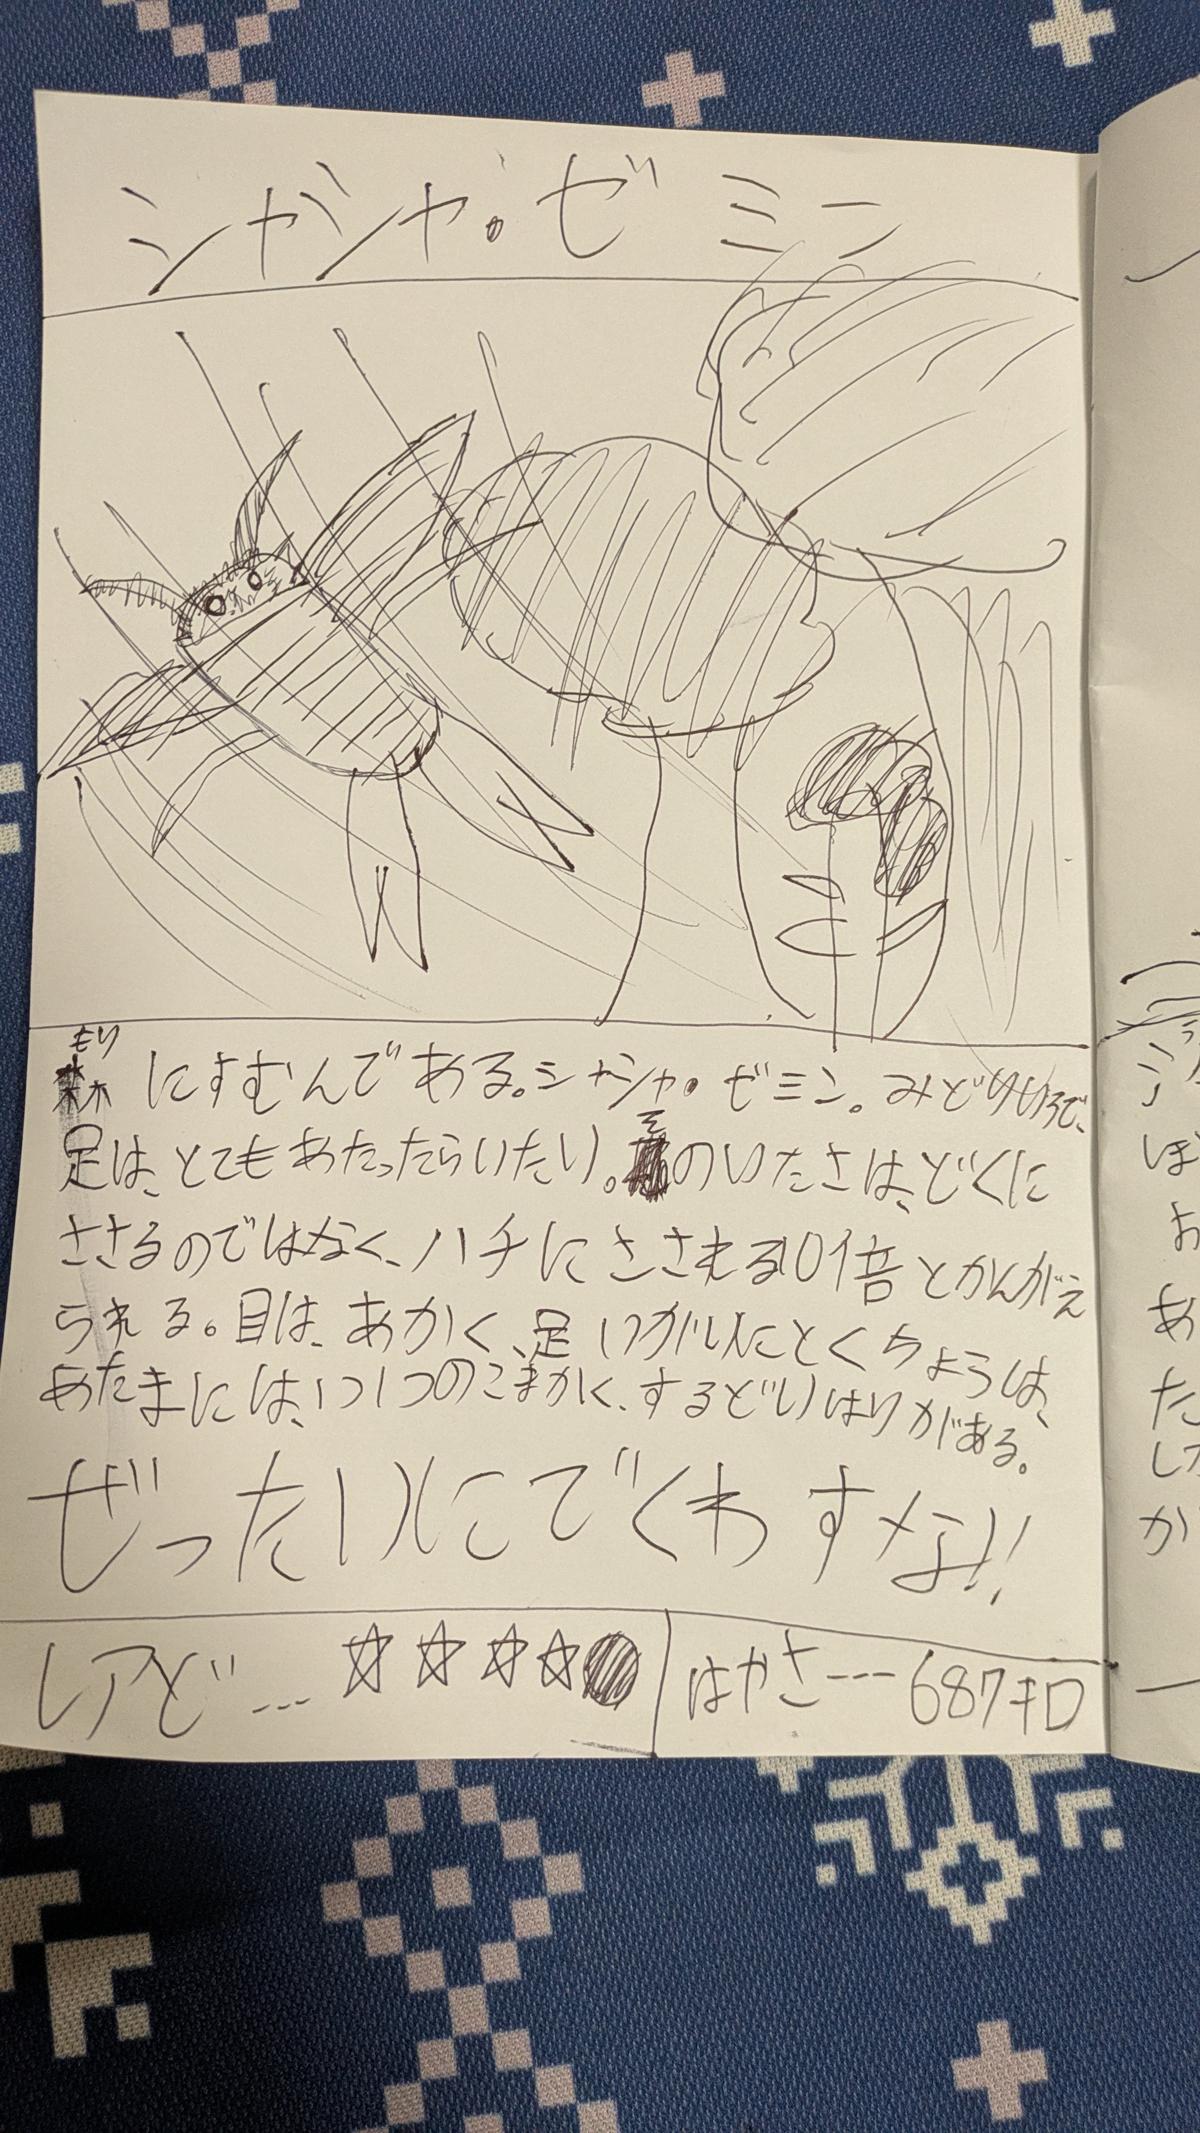 シャシャ・ゼミン
もり
森にすむんである。シャシャ・ゼミン。みどりいろで、
足は、とてもあたったらいたい。そのいたさは、どくに
ささるのではなく、ハチにささされる10倍とかんがえ
られる。目は、あかく、足いがいにとくちょうは、
あたまには、1つ1つのこまかく、するどいはりがある。
ぜったいにでくわすな!!
レアど…☆☆☆☆●
はやさ…687キロ